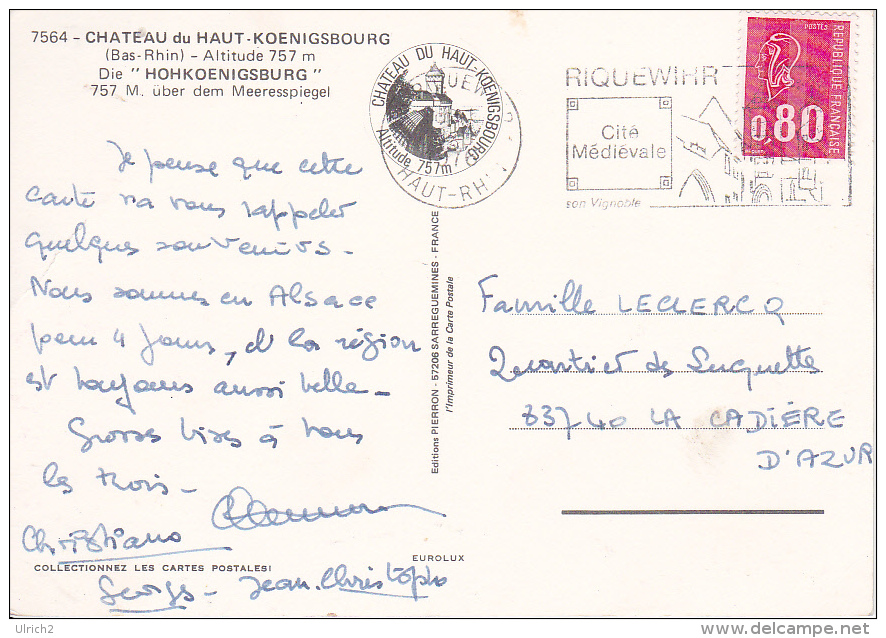 7564 - CHATEAU du HAUT-KOENIGSBOURG
(Bas-Rhin) - Altitude 757 m
Die " HOHKOENIGSBURG "
757 M. über dem Meeresspiegel
CHATEAU DU HAUT-KOENIGSBOURG
Altitude 757m
HAUT-RHIN
RIQUEWIHR
Cité
Médiévale
son Vignoble
POSTES
REPUBLIQUE FRANÇAISE
0,80
Je pense que cette
carte va vous rappeler
quelques souvenirs -
Nous sommes en Alsace
pour 4 jours, et la région
est toujours aussi belle -
Grosses bises à vous
les trois -
Christiane
Georges - Jean-Christophe
Editions PIERRON - 57206 SARREGUEMINES - FRANCE
l'Imprimeur de la Carte Postale
Famille LECLERCQ
Quartier de
83740 LA CADIÈRE
D'AZUR
COLLECTIONNEZ LES CARTES POSTALES!
EUROLUX
Ulrich2
www.delcampe.net